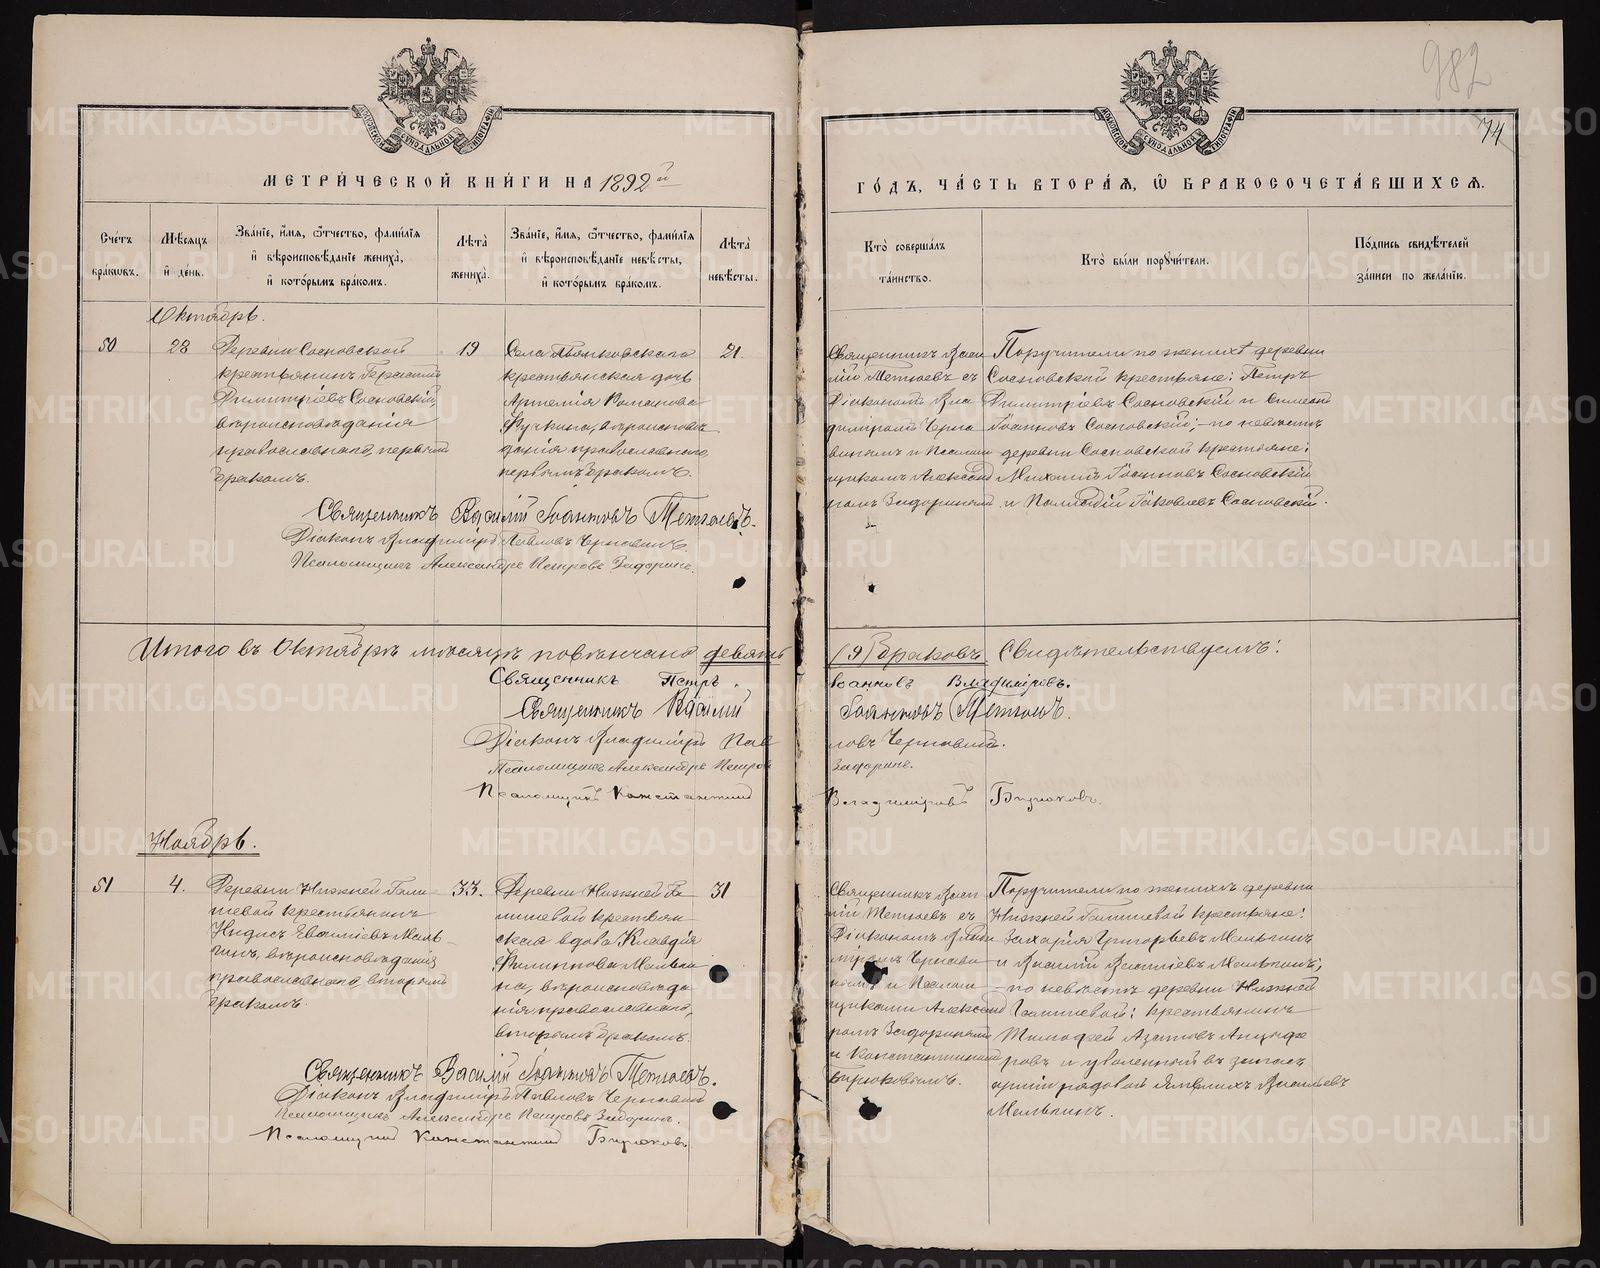 982
74
МЕТРИ́ЧЕСКОЙ КНИ́ГИ НА 1892й
ГО́ДЪ, ЧА́СТЬ ВТОРА́Я, Ѿ БРАКОСОЧЕТА́ВШИХСЯ.
Сче́тъ бра́ковъ.
Мѣ́сяцъ и де́нь.
Зва́нїе, и́мя, ѻ́тчество, фами́лїя и вѣроисповѣ́данїе жениха̀, и кото́рымъ бра́комъ.
Лѣта̀ жениха̀.
Зва́нїе, и́мя, ѻ́тчество, фами́лїя и вѣроисповѣ́данїе невѣ́сты, и кото́рымъ бра́комъ.
Лѣта̀ невѣ́сты.
Кто̀ соверша́лъ та́инство.
Кто̀ бы́ли поручи́тели.
По́дпись свидѣ́телей за́писи по жела́нїю.
Октябрь.
50
28
Деревни Сосновской
крестьянинъ Герасимъ
Димитріевъ Сосновскій,
вѣроисповѣданія
православнаго, первымъ
бракомъ.
19
Села
крестьянская дочь
Артемія Романова
вѣроисповѣ
данія православнаго,
первымъ бракомъ.
21.
Священникъ Васи
лій Метіоевъ съ
Діакономъ Вла
диміромъ Черна
винымъ и Псалом
щикомъ Александ
ромъ Задоринымъ
Поручители по женихѣ деревни
Сосновской крестьяне: Петръ
Димитріевъ Сосновскій и Симеонъ
Іоанновъ Сосновскій; по невѣстѣ
деревни Сосновской крестьяне:
Михаилъ Іоанновъ Сосновскій
и Іаковлевъ Сосновскій.
Священникъ Василій Іоанновъ
Діаконъ Владиміръ Павловъ Чернавинъ
Псаломщикъ Александръ Петровъ Задоринъ.
Итого въ Октябрѣ мѣсяцѣ повѣнчано девять (9) браковъ Свидѣтельствуемъ:
Священникъ Петръ Іоанновъ Владиміровъ.
Священникъ Василій Іоанновъ
Діаконъ Владиміръ Павловъ Чернавинъ.
Псаломщикъ Александръ Петровъ Задоринъ.
Псаломщикъ Константинъ Владиміровъ Бирюковъ.
Ноябрь.
51
4.
Деревни Нижней
крестьянинъ
Евѳиміевъ Маль
гинъ, вѣроисповѣданія
православнаго, вторымъ
бракомъ
33.
Деревни Нижней
крестьян
ская вдова Клавдія
Филиппова Мальги
на, вѣроисповѣда
нія православнаго,
вторымъ бракомъ.
31
Священникъ Васи
лій съ
Діакономъ Влади
міромъ Чернави
нымъ и Псалом
щиками Александ
ромъ Задоринымъ
и Константиномъ
Бирюковымъ.
Поручители по женихѣ деревни
Нижней крестьяне:
Захарія Григорьевъ Мальгинъ
и Василій Василіевъ Мальгинъ;
по невѣстѣ деревни Нижней
крестьянинъ
Тимофей
и уволенный въ запасъ
арміи рядовой Васильевъ
Мальгинъ.
Священникъ Василій Іоанновъ
Діаконъ Владиміръ Павловъ Чернавинъ
Псаломщикъ Александръ Петровъ Задоринъ.
Псаломщикъ Константинъ Бирюковъ
METRIKI.GASO-URAL.RU